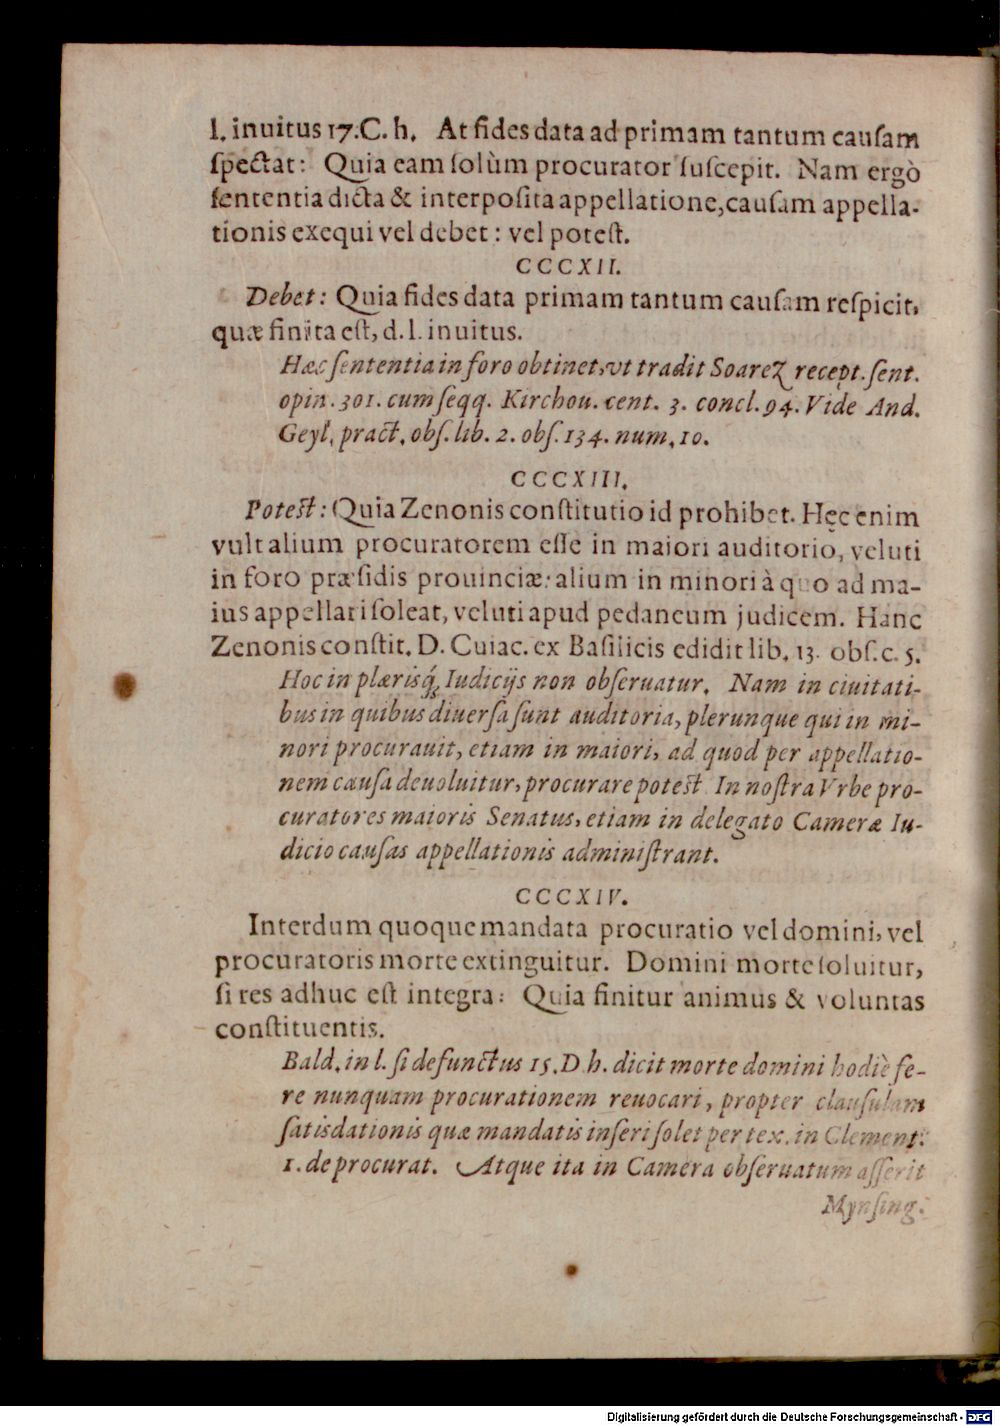 l. inuitus 17. C. h. At fides data ad primam tantum cauſam
ſpectat: Quia eam ſolùm procurator ſuſcepit. Nam ergò
ſententia dicta & interpoſita appellatione, cauſam appella-
tionis exequi vel debet: vel poteſt.
CCCXII.
Debet: Quia fides data primam tantum cauſam reſpicit,
quæ finita eſt, d. l. inuitus.
Hæc ſententia in foro obtinet, vt tradit Soarez recept. ſent.
opin. 301. cum ſeqq. Kirchou. cent. 3. concl. 94. Vide And.
Geyl, pract. obſ. lib. 2. obſ. 134. num. 10.
CCCXIII.
Poteſt: Quia Zenonis conſtitutio id prohibet. Hęc enim
vult alium procuratorem eſſe in maiori auditorio, veluti
in foro præſidis prouinciæ: alium in minori à quo ad ma-
ius appellari ſoleat, veluti apud pedaneum judicem. Hanc
Zenonis conſtit. D. Cuiac. ex Baſilicis edidit lib. 13. obſ. c. 5.
Hoc in plæriſq́; Iudicijs non obſeruatur. Nam in ciuitati-
bus in quibus diuerſa ſunt auditoria, plerunque qui in mi-
nori procurauit, etiam in maiori, ad quod per appellatio-
nem cauſa deuoluitur, procurare poteſt. In noſtra Vrbe pro-
curatores maioris Senatus, etiam in delegato Cameræ Iu-
dicio cauſas appellationis adminiſtrant.
CCCXIV.
Interdum quoque mandata procuratio vel domini, vel
procuratoris morte extinguitur. Domini morte ſoluitur,
ſi res adhuc eſt integra: Quia finitur animus & voluntas
conſtituentis.
Bald. in l. ſi defunctus 15. D. h. dicit morte domini hodiè fe-
re nunquam procurationem reuocari, propter clauſulam
ſatisdationis quæ mandatis inſeri ſolet per tex. in Clement.
1. de procurat. Atque ita in Camera obſeruatum aſſerit
Mynſing.
Digitalisierung gefördert durch die Deutsche Forschungsgemeinschaft - DFG